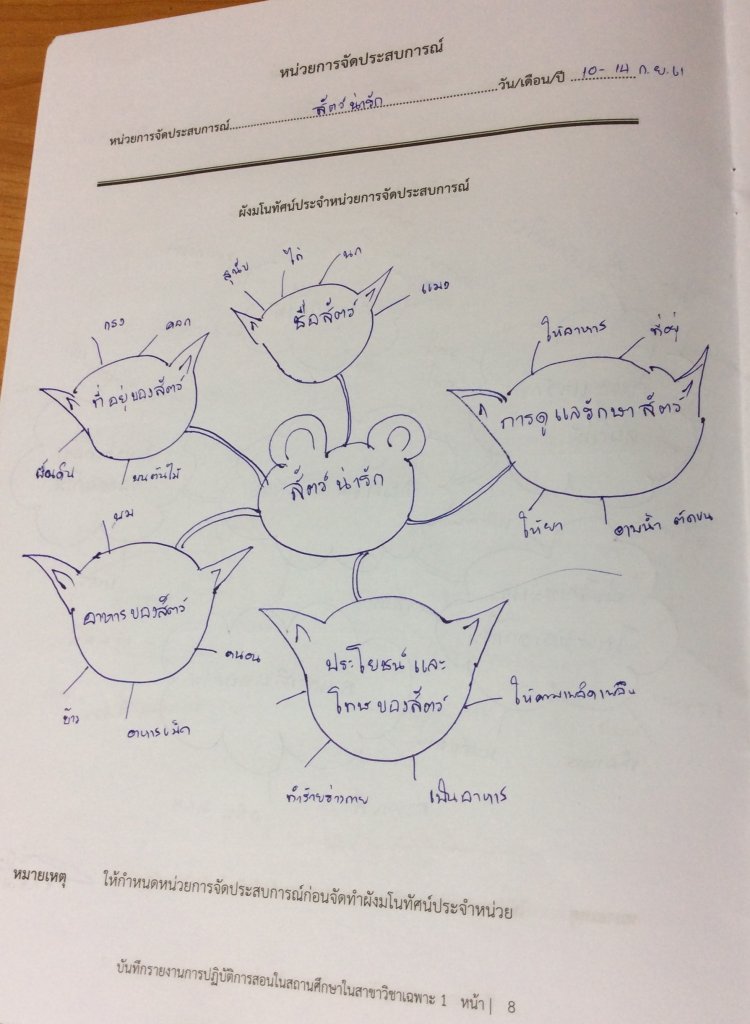 หน่วยการจัดประสบการณ์
หน่วยการจัดประสบการณ์ สัตว์น่ารัก วัน/เดือน/ปี 10-14 ก.ย. 61
ผังมโนทัศน์ประจำหน่วยการจัดประสบการณ์
สุนัข ไก่ นก แมง
ชื่อสัตว์
กรง คอก
ที่อยู่ของสัตว์
บนต้นไม้
ให้อาหาร ที่อยู่
การดูแลรักษาสัตว์
ให้ยา อาบน้ำ ตัดขน
สัตว์น่ารัก
นม
อาหารของสัตว์
หนอน
ข้าว อาหารเม็ด
ประโยชน์และ
โทษของสัตว์
ให้ความเพลิดเพลิน
ทำร้ายร่างกาย เป็นอาหาร
หมายเหตุ ให้กำหนดหน่วยการจัดประสบการณ์ก่อนจัดทำผังมโนทัศน์ประจำหน่วย
บันทึกรายงานการปฏิบัติการสอนในสถานศึกษาในสาขาวิชาเฉพาะ 1 หน้า | 8